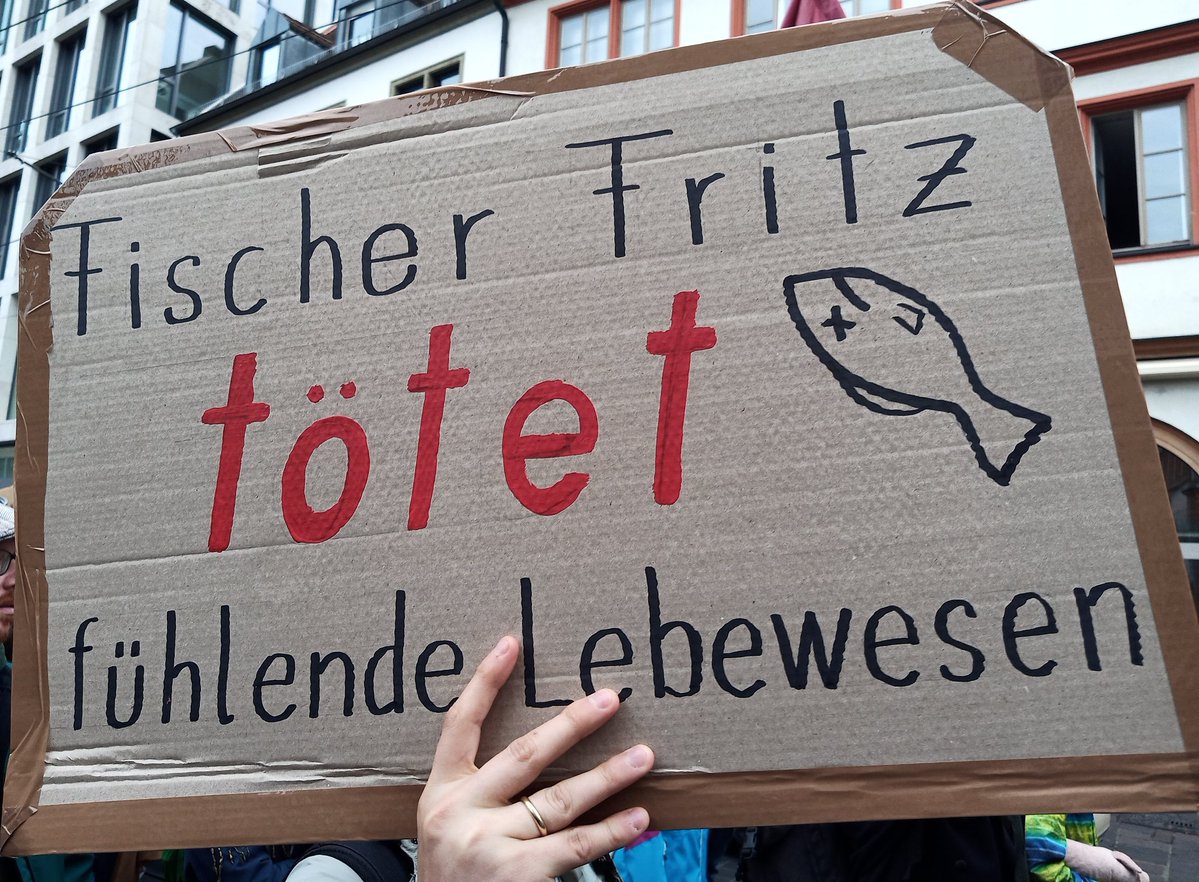 Fischer Fritz
tötet
fühlende Lebewesen